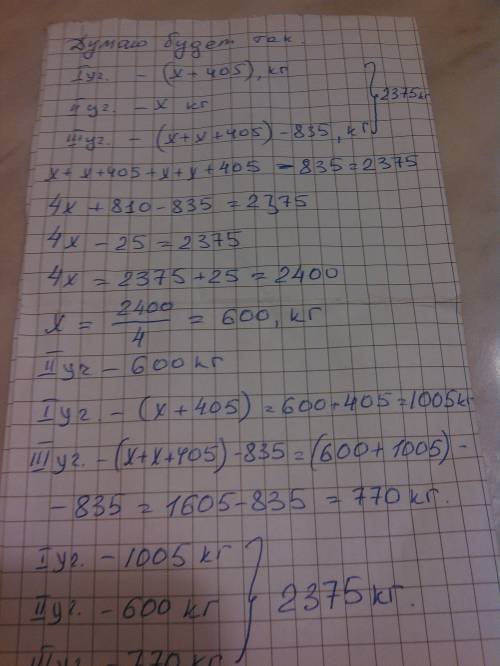 Думаю будет так.
I уч. - (x+405), кг
II уч. - x кг
III уч. - (x+x+405)-835, кг } 2375 кг
x+x+405+x+x+405 -835=2375
4x+810-835=2375
4x-25=2375
4x=2375+25=2400
x = 2400/4 = 600, кг
II уч - 600 кг
I уч. - (x+405)=600+405=1005 кг
III уч. -(x+x+405)-835=(600+1005)-
-835=1605-835=770 кг.
I уч. -1005 кг
II уч. -600 кг } 2375 кг.
III уч. -770 кг